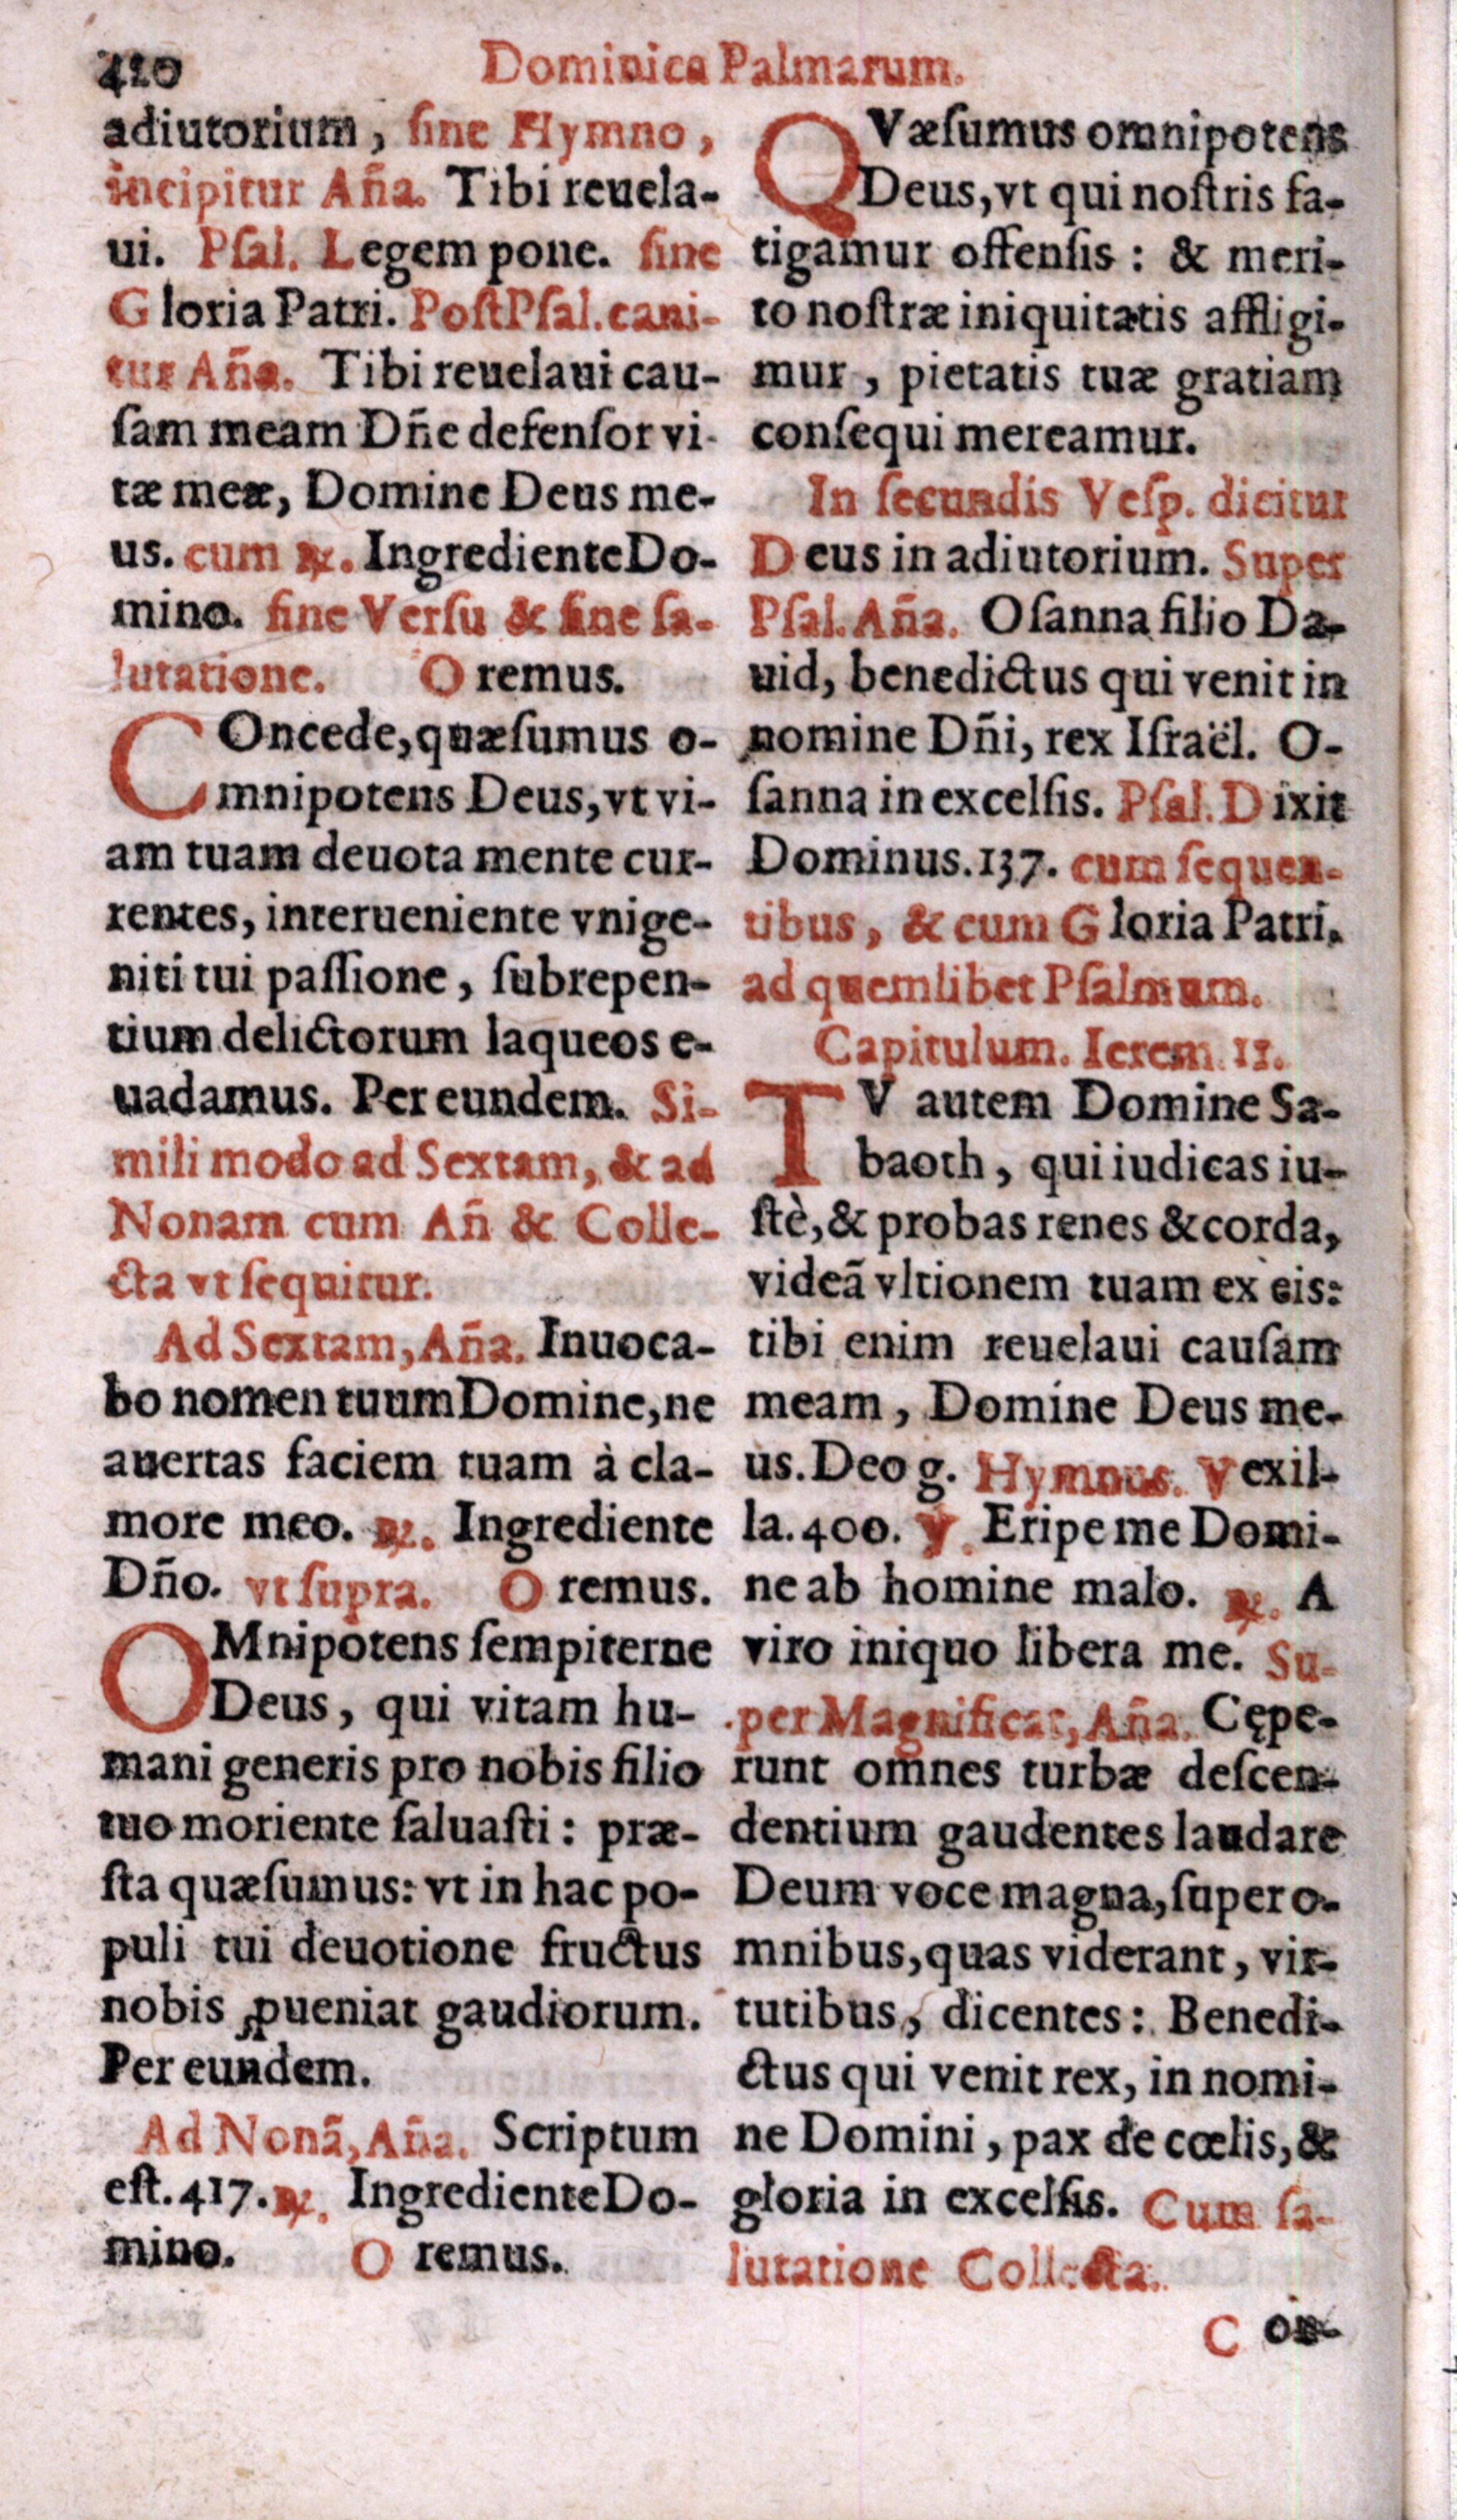 420 Dominica Palmarum.
adiutorium, ſine Hymno,
incipitur Añа. Tibi reuela-
ui. Pſal. Legem pone. ſine
Gloria Patri. Poſt Pſal. cani-
tur Aña. Tibi reuelaui cau-
ſam meam Dñe defenſor vi-
tæ meæ, Domine Deus me-
us. cum ℞. Ingrediente Do-
mino. ſine Verſu & ſine ſa-
lutatione. Oremus.
COncede, quæſumus o-
mnipotens Deus, vt vi-
am tuam deuota mente cur-
rentes, interueniente vnige-
niti tui paſſione, ſubrepen-
tium delictorum laqueos e-
uadamus. Per eundem. Si-
mili modo ad Sextam, & ad
Nonam cum Añ & Colle-
cta vt ſequitur.
Ad Sextam, Aña. Inuoca-
bo nomen tuum Domine, ne
auertas faciem tuam à cla-
more meo. ℞. Ingrediente
Dño. vt ſupra. Oremus.
OMnipotens ſempiterne
Deus, qui vitam hu-
mani generis pro nobis filio
tuo moriente ſaluaſti: præ-
ſta quæſumus: vt in hac po-
puli tui deuotione fructus
nobis ꝓueniat gaudiorum.
Per eundem.
Ad Nonã, Aña. Scriptum
eſt. 417. ℞. Ingrediente Do-
mino. Oremus.
QVæſumus omnipotens
Deus, vt qui noſtris fa-
tigamur offenſis: & meri-
to noſtræ iniquitatis affligi-
mur, pietatis tuæ gratiam
conſequi mereamur.
In ſecundis Veſp. dicitur
Deus in adiutorium. Super
Pſal. Aña. Oſanna filio Da-
uid, benedictus qui venit in
nomine Dñi, rex Iſraël. O-
ſanna in excelſis. Pſal. Dixit
Dominus. 137. cum ſequen-
tibus, & cum Gloria Patri,
ad quemlibet Pſalmum.
Capitulum. Ierem. 11.
TV autem Domine Sa-
baoth, qui iudicas iu-
ſtè, & probas renes & corda,
videã vltionem tuam ex eis:
tibi enim reuelaui cauſam
meam, Domine Deus me-
us. Deo g. Hymnus. Vexil-
la. 400. ℣. Eripe me Domi-
ne ab homine malo. ℞. A
viro iniquo libera me. Su-
per Magnificat, Aña. Cępe-
runt omnes turbæ deſcen-
dentium gaudentes laudare
Deum voce magna, ſuper o-
mnibus, quas viderant, vir-
tutibus, dicentes: Benedi-
ctus qui venit rex, in nomi-
ne Domini, pax de cœlis, &
gloria in excelſis. Cum ſa-
lutatione Collecta.
Con-